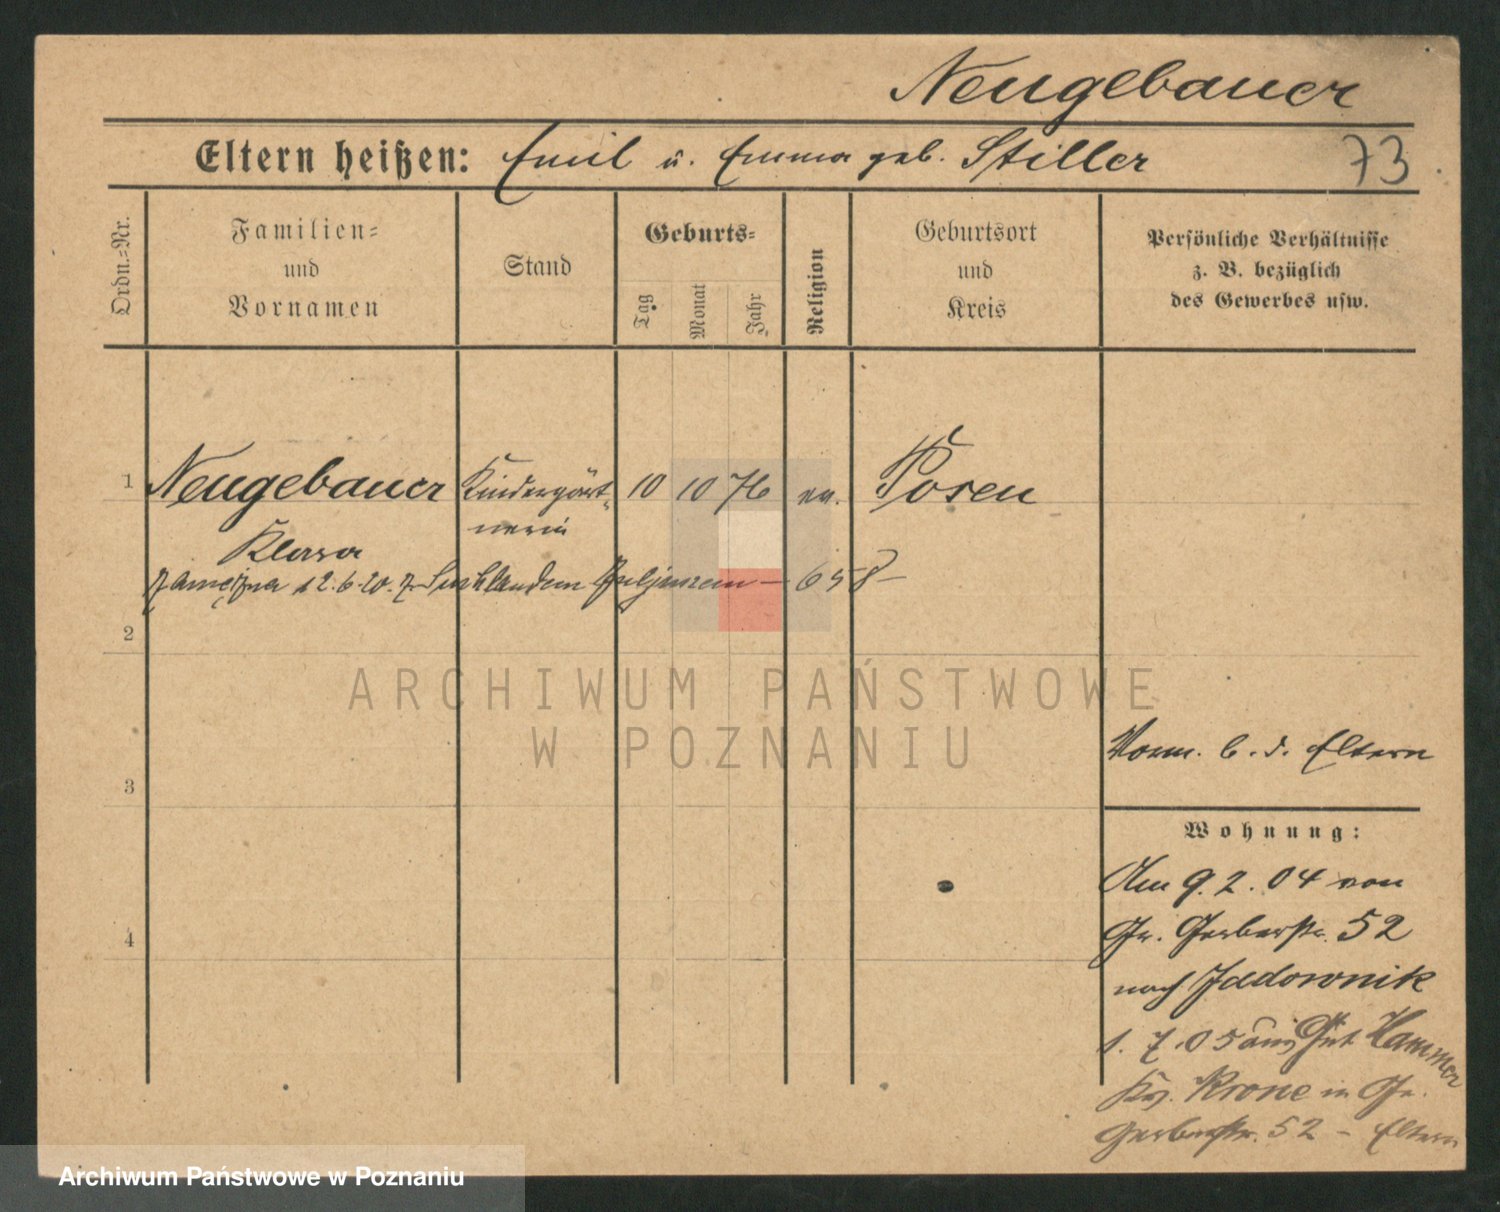 Neugebauer
Eltern heißen: Emil u. Emma geb. Stiller 73
Ordn.-Nr.
Familien-
und
Vornamen
Stand
Geburts-
Tag
Monat
Jahr
Religion
Geburtsort
und
Kreis
Persönliche Verhältnisse
z. B. bezüglich
des Gewerbes usw.
1 Neugebauer Kindergärt- 10 10 76 ev. Posen
nerin
Klara
Zamężna 12.6.20. z 658
2
ARCHIWUM PAŃSTWOWE
W POZNANIU
Vorm. b. d. Eltern
3
Wohnung:
Am 9.2.04 von
Gr. Gerberstr. 52
4
nach Jadownik
1.7.05 aus Gut Hammer
Kr. Krone in Gr.
Gerberstr. 52 - Eltern
Archiwum Państwowe w Poznaniu